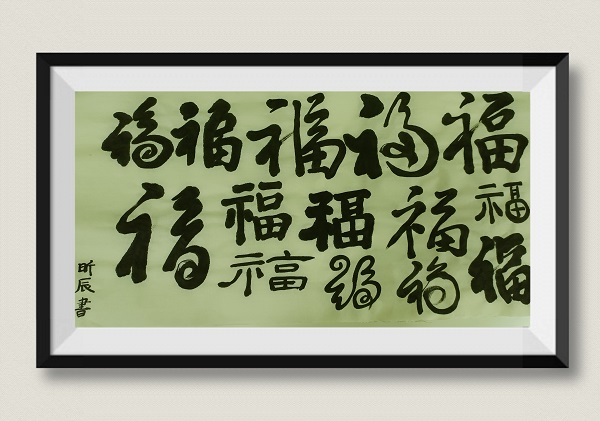 福福福福福
福福福福福
福福福福
昕辰書